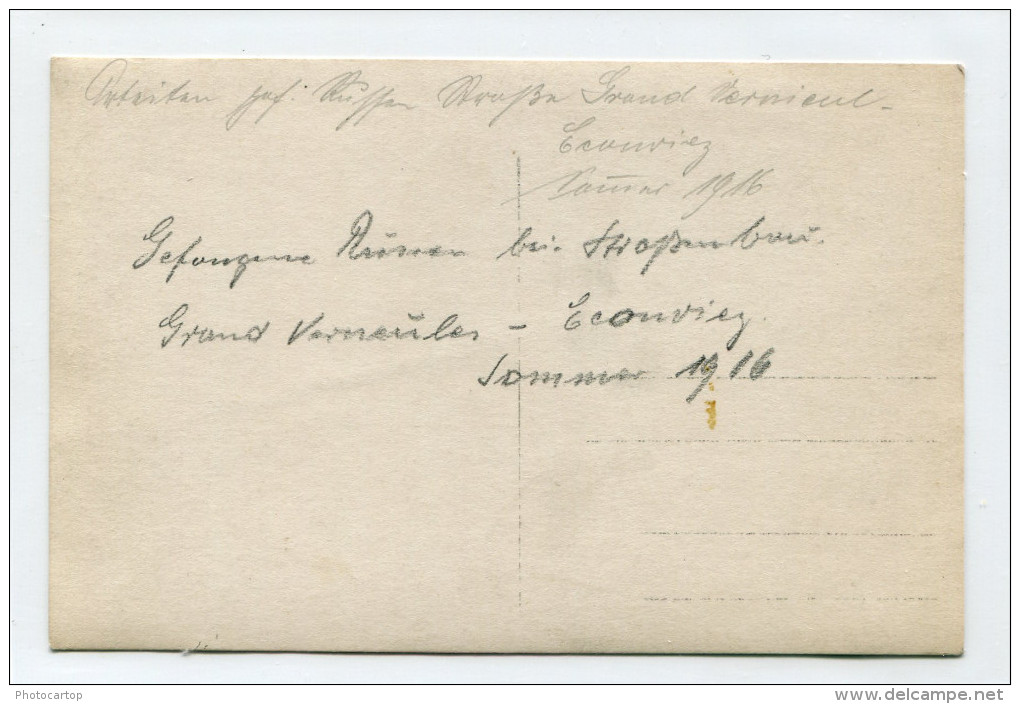 Arbeiten gef. Russen Straße Grand Verneiul-
Ecouviez
Som̅er 1916
Gefangene Russen bei Straßenbau.
Grand Verneules - Ecouviez.
Sommer 1916
Photocartop
www.delcampe.net